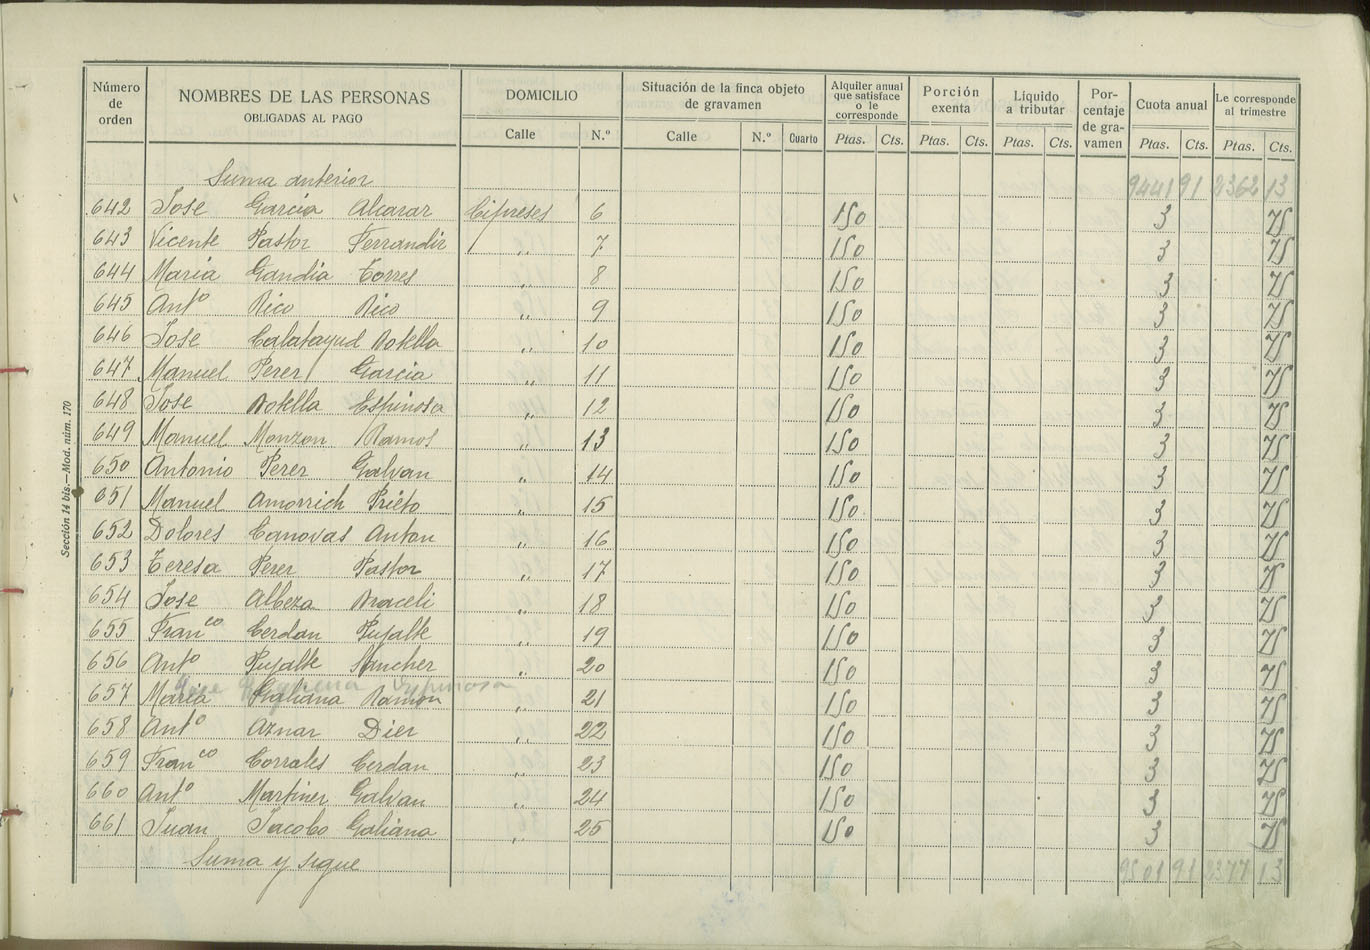 Número de orden NOMBRES DE LAS PERSONAS OBLIGADAS AL PAGO DOMICILIO Situación de la finca objeto de gravamen Alquiler anual que satisface o le corresponde Porción exenta Líquido a tributar Por-centaje de gra-vamen Cuota anual Le corresponde al trimestre
Calle N.º Calle N.º Cuarto Ptas. Cts. Ptas. Cts. Ptas. Cts. Ptas. Cts. Ptas. Cts.
Suma anterior 9441 91 2362 13
642 Jose Garcia Alcaraz Cipreses 6 150 3 75
643 Vicente Pastor Ferrandiz " 7 150 3 75
644 Maria Gandia Torres " 8 150 3 75
645 Antº Rico Rico " 9 150 3 75
646 Jose Calatayud Botella " 10 150 3 75
647 Manuel Perez Garcia " 11 150 3 75
648 Jose Botella Espinosa " 12 150 3 75
649 Manuel Monzon Ramos " 13 150 3 75
650 Antonio Perez Galvan " 14 150 3 75
651 Manuel Amorrich Prieto " 15 150 3 75
652 Dolores Canovas Anton " 16 150 3 75
653 Teresa Perez Pastor " 17 150 3 75
654 Jose Albeza Braceli " 18 150 3 75
655 Franco Cerdan Pujalte " 19 150 3 75
656 Antº Pujalte Sanchez " 20 150 3 75
Espinosa
657 Maria Galiana Ramon " 21 150 3 75
658 Antº Aznar Diez " 22 150 3 75
659 Franco Corrales Cerdan " 23 150 3 75
660 Antº Martinez Galvan " 24 150 3 75
661 Juan Jacobo Galiana " 25 150 3 75
Suma y sigue 9501 91 2377 13
Sección 14 bis.—Mod. núm. 170